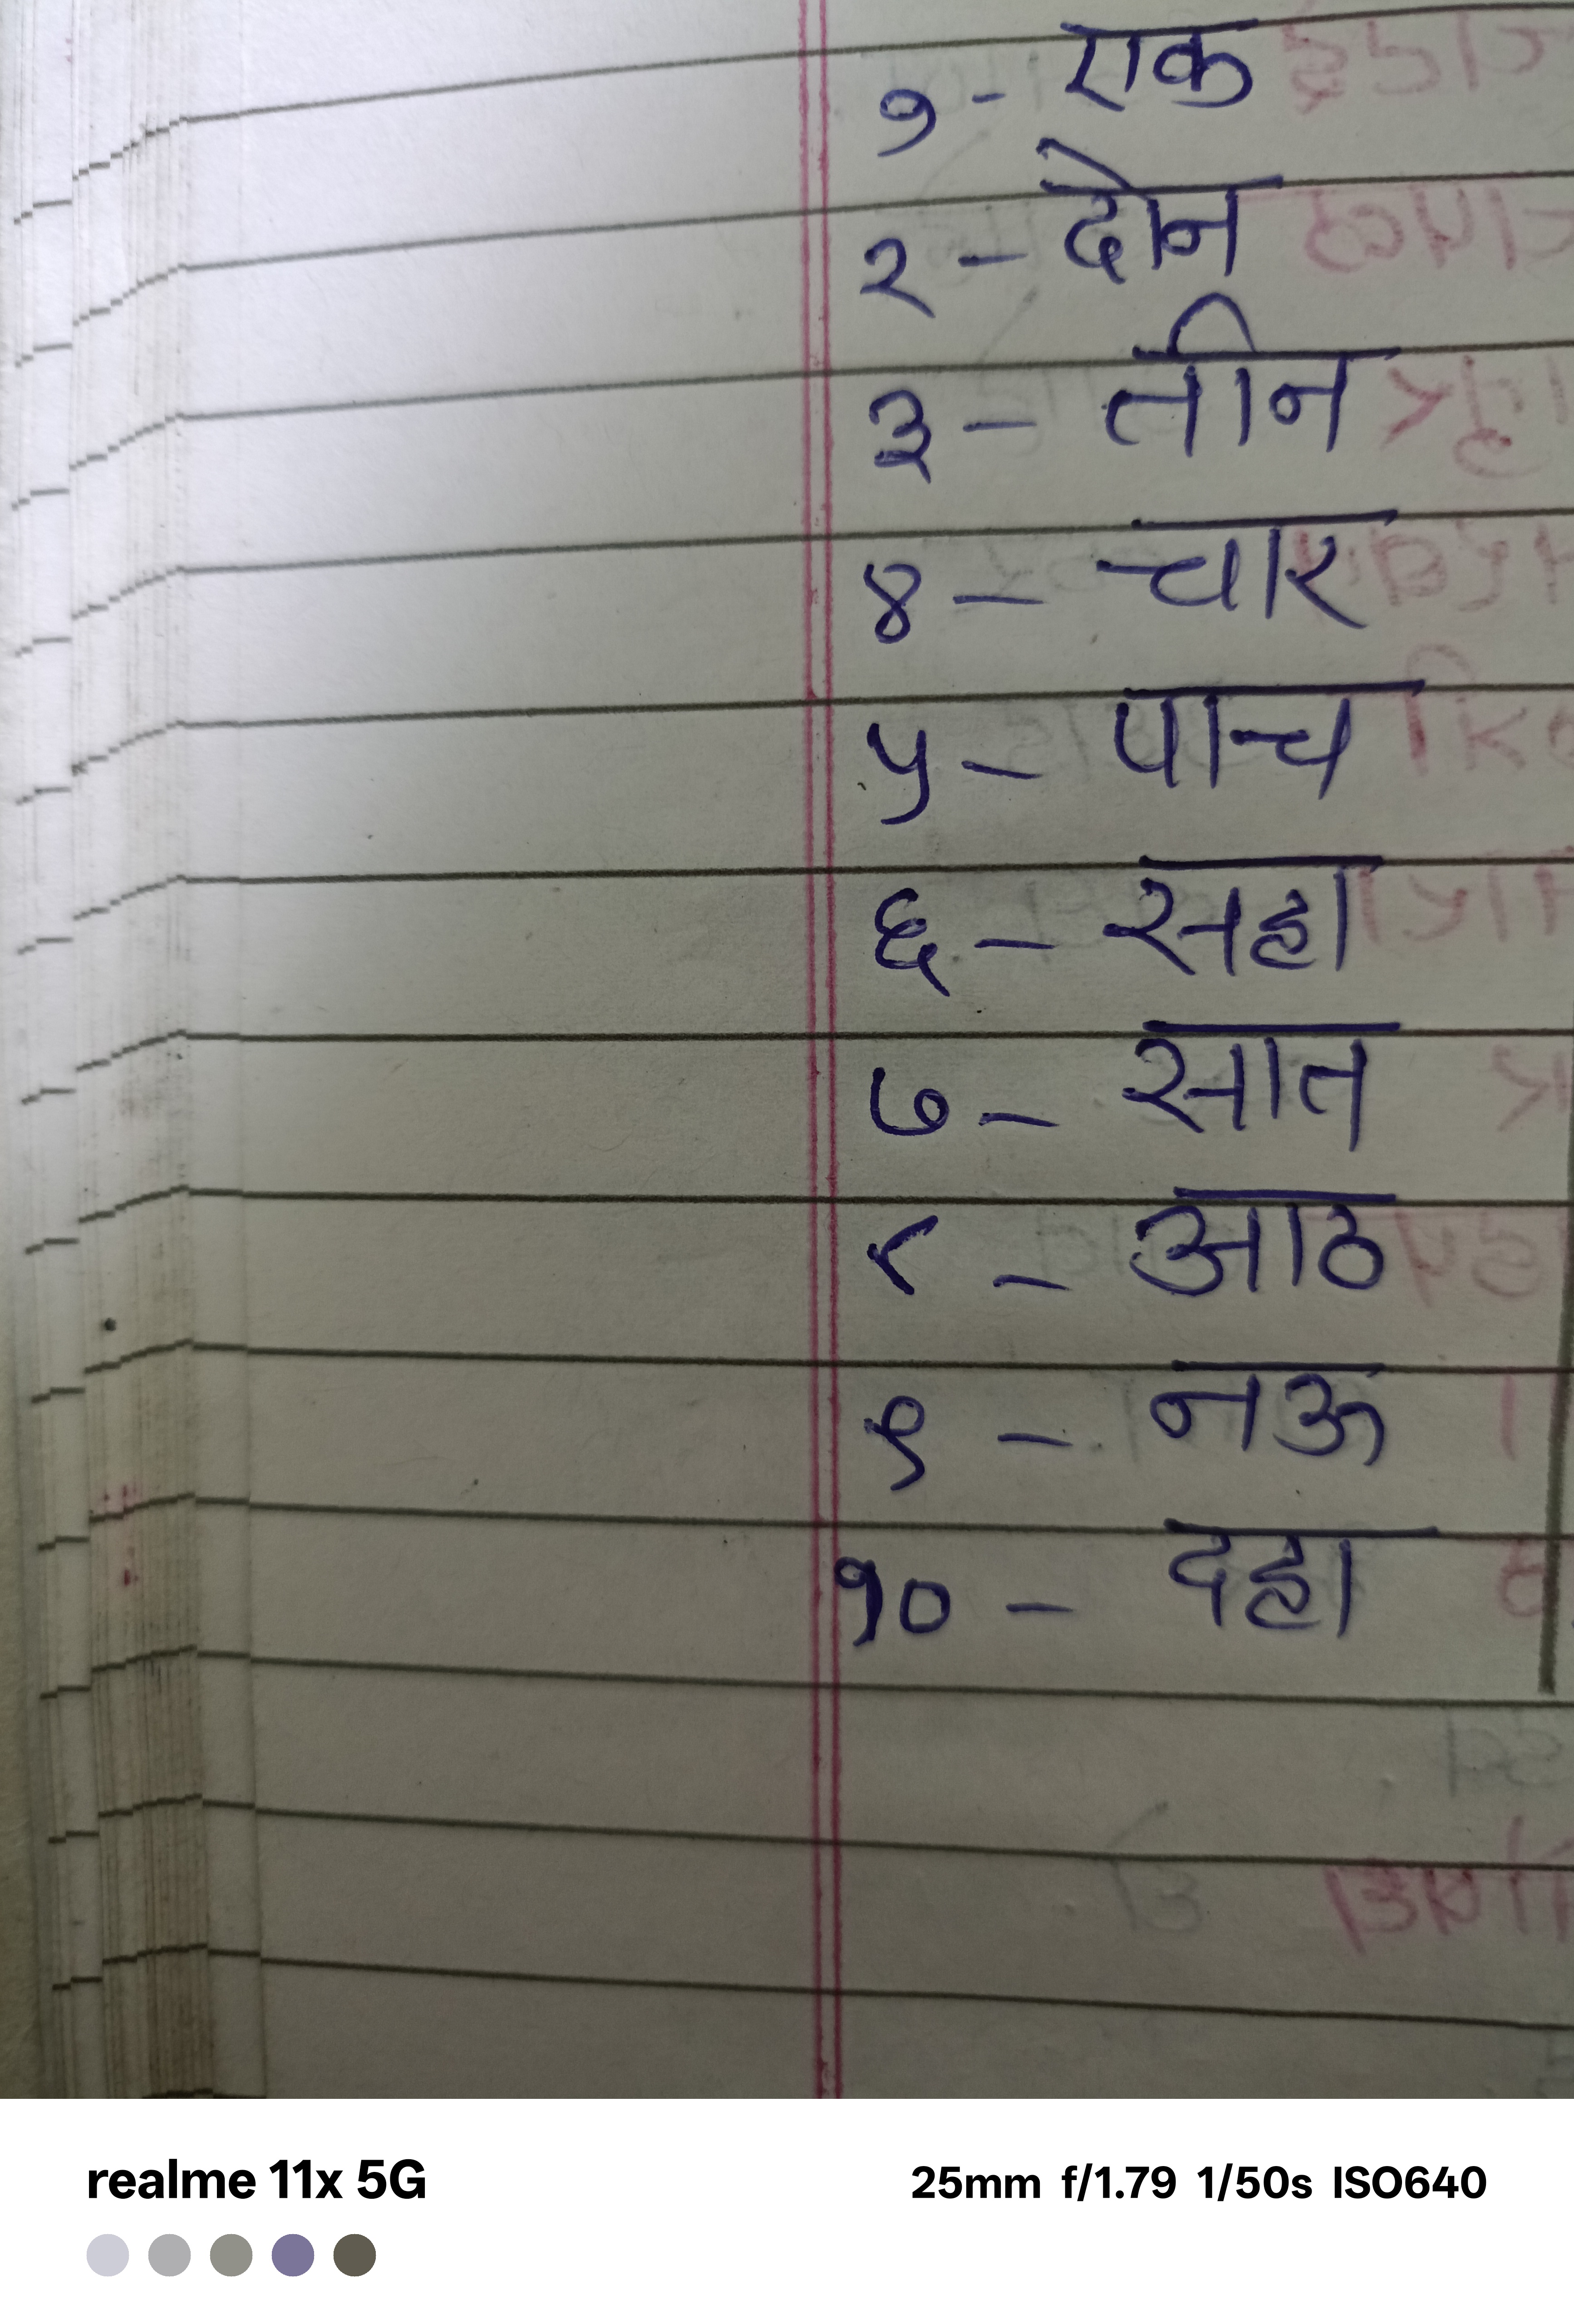 १ - एक
२ - दोन
३ - तीन
४ - चार
५ - पाच
६ - सहा
७ - सात
८ - आठ
९ - नऊ
१० - दहा
realme 11x 5G
25mm f/1.79 1/50s ISO640